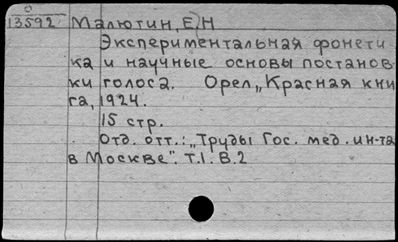 0
13592 Малютин, Е Н
Экспериментальная фонети
ка и научные основы постанов
ки голоса. Орел, „Красная кни
га, 1924.
15 стр.
Отд. отт.: „Труды Гос. мед. ин-та
в Москве". Т.1. В.2